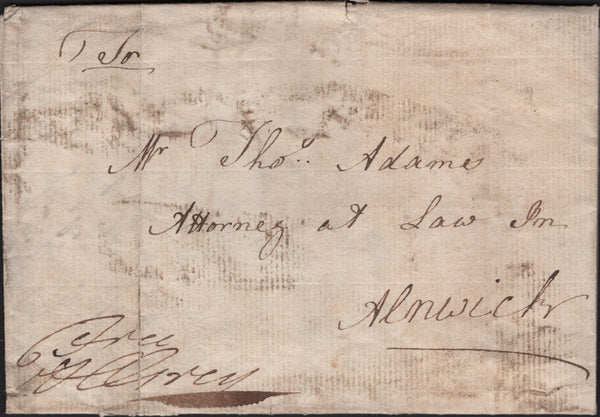 To
Mr Tho:s Adams
Attorney at Law In
Alnwick
Free
Grey